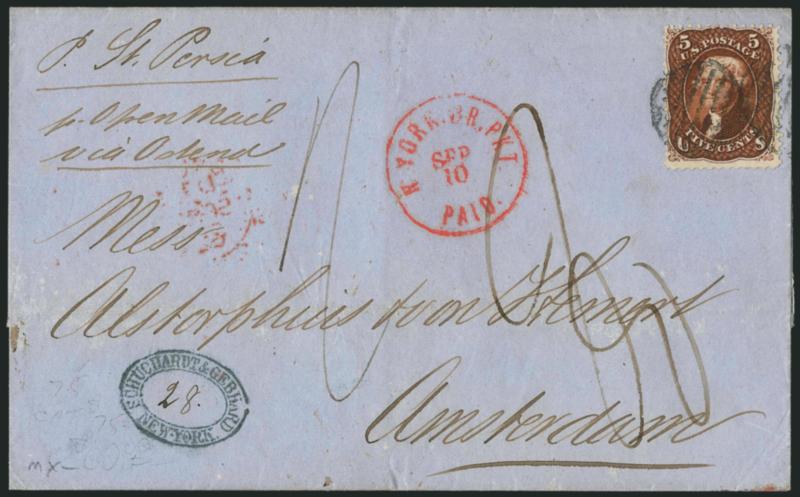 P. St. Persia
p. Open Mail
via Ostend
5 U.S. POSTAGE 5
U FIVE CENTS S
N. YORK. BR. PKT
SEP
10
PAID.
Mess
Alstorphius & von Hemert
Amsterdam
SCHUCHARDT & GEBHARD
28.
NEW-YORK.